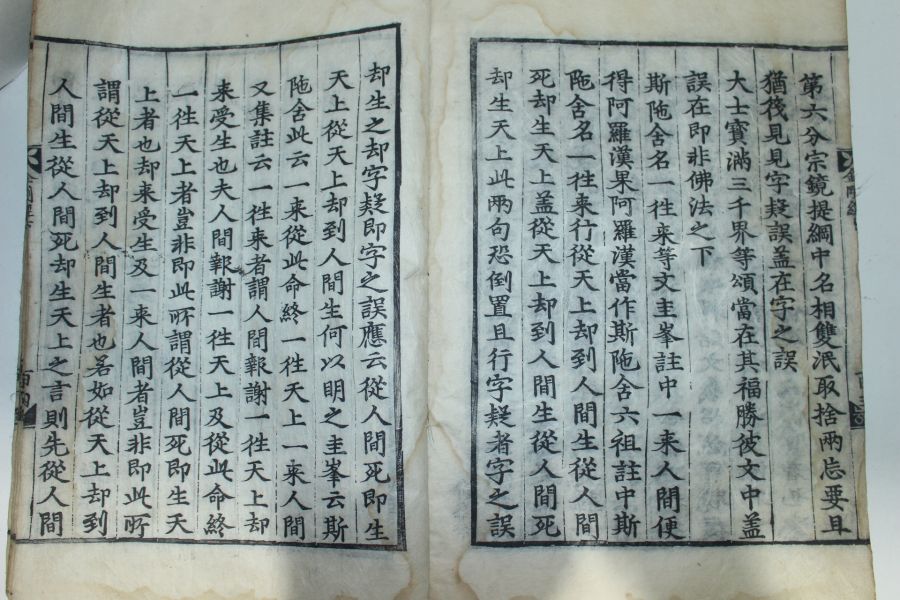 第六分宗鏡提綱中名相雙泯取捨兩忘要且
猶筏見見字疑誤盖在字之誤
大士寶滿三千界等頌當在其福勝彼文中盖
誤在即非佛法之下
斯陁舍名一徃来等文圭峯註中一来人間便
得阿羅漢果阿羅漢當作斯陁舍六祖註中斯
陁舍名一徃来行從天上却到人間生從人間
死却生天上盖從天上却到人間生從人間死
却生天上此兩句恐倒置且行字疑者字之誤
却生之却字疑即字之誤應云從人間死即生
天上從天上却到人間生何以明之圭峯云斯
陁舍此云一来從此命終一徃天上一来人間
又集註云一徃来者謂人間報謝一徃天上却
来受生也夫人間報謝一徃天上及從此命終
一徃天上者豈非即此所謂從人間死即生天
上者也却来受生及一来人間者豈非即此所
謂從天上却到人間生者也若如從天上却到
人間生從人間死却生天上之言則先從人間